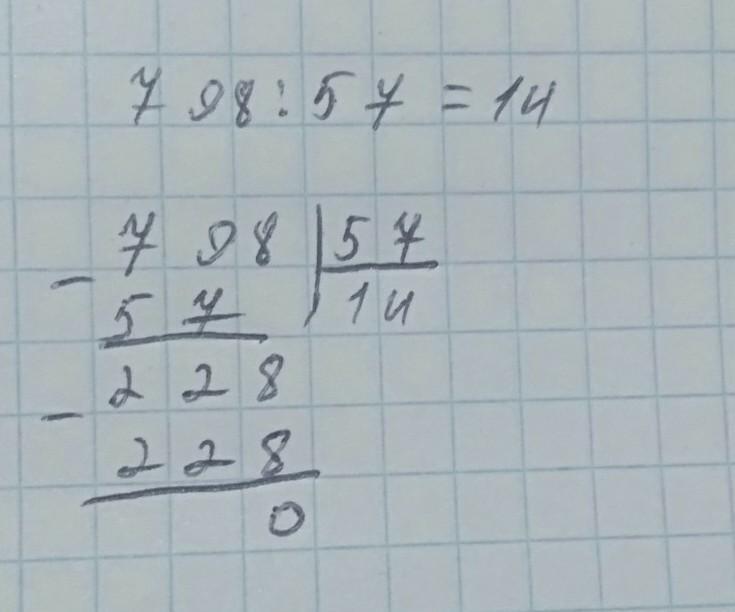 798:57=14
- 798|57
57 |14
- 228
228
0